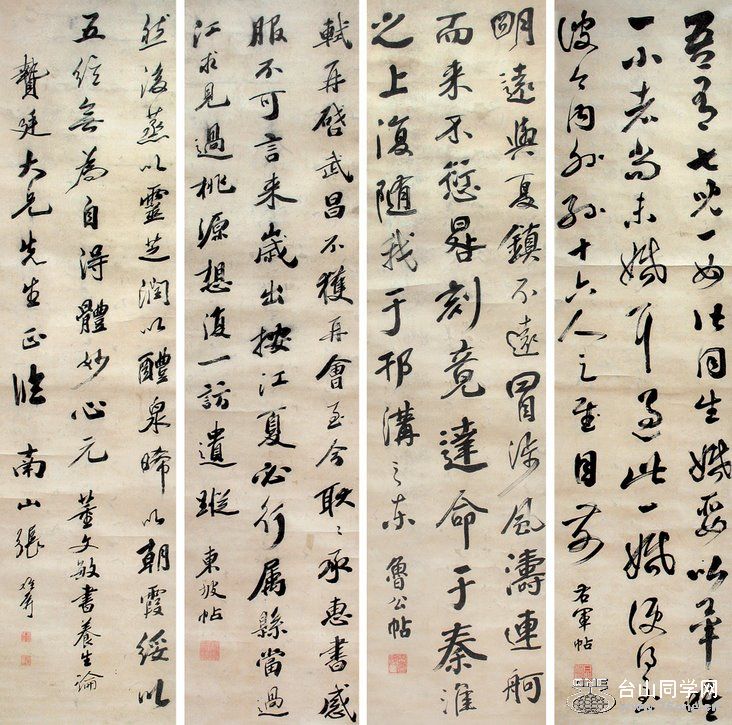 吾有七兒一女皆同生婚娶以畢唯
一小者尚未婚耳過此一婚便得至
彼今内外孫十六人足慰目前 右軍帖
明遠與夏鎮不遠冒涉風濤連舸
而来不愆晷刻竟達命于秦淮
之上復随我于邗溝之东 魯公帖
軾再啓武昌不獲再會至今耿〻承惠書感
服不可言来歲出按江夏必行属縣當過
江求見過桃源想復一訪遺蹤 東坡帖
然後蒸以靈芝潤以醴泉晞以朝霞綏以
五絃無為自得體妙心元 董文敏書養生論
贊廷大兄先生正 南山張
台山同学网